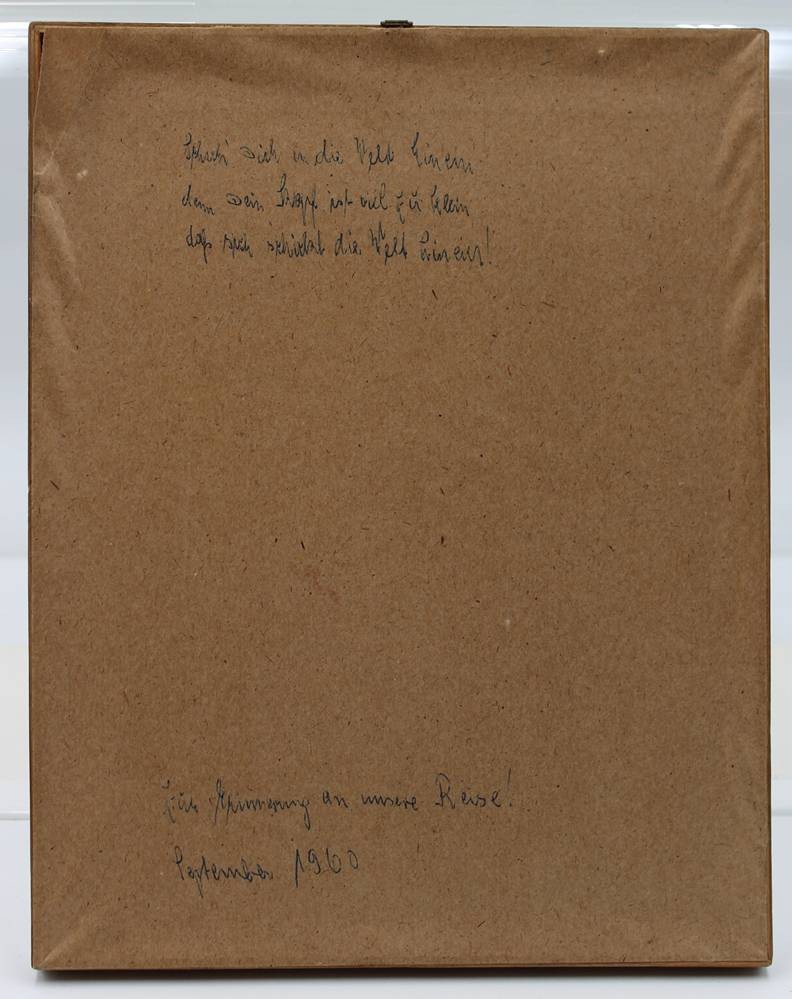 Schick dich in die Welt hinein
denn dein Kopf ist viel zu klein
daß sich schickt die Welt hinein!
Zur Erinnerung an unsere Reise!
September 1960